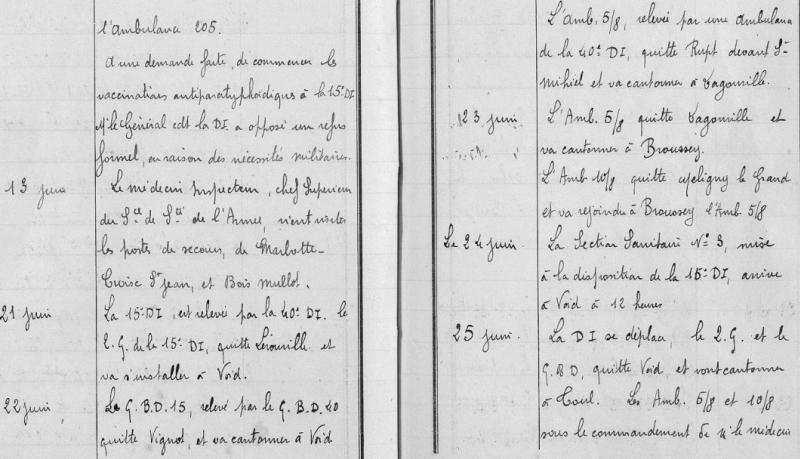 l'Ambulance 205.
A une demande faite, de commencer les
vaccinations antiparatyphoïdiques à la 15e DI
Mr le Général cdt la DI a opposé un refus
formel, en raison des nécessités militaires.
13 juin Le médecin Inspecteur, chef Supérieur
du Sce de Sté de l'Armée, vient visiter
les postes de secours, de Marbotte-
Croix St Jean, et Bois Mullot.
21 juin La 15e DI, est relevée par la 40e DI. le
Q.G. de la 15e DI, quitte Lérouville et
va s'installer à Void.
22 juin Le G.B.D. 15, relevé par le G.B.D. 40
quitte Vignot, et va cantonner à Void
L'Amb. 5/8, relevée par une Ambulance
de la 40e DI, quitte Rupt devant St
Mihiel et va cantonner à Vagonville.
23 juin L'Amb. 5/8 quitte Vagonville et
va cantonner à Broussey.
L'Amb 10/8 quitte le Grand
et va rejoindre à Broussey l'Amb. 5/8
Le 24 juin La Section Sanitaire No 3, mise
à la disposition de la 15e DI, arrive
à Void à 12 heures
25 juin. La DI se déplace le Q.G. et le
G.B.D, quitte Void, et vont cantonner
à Toul. Les Amb. 5/8 et 10/8
sous le commandement de Mr le médecin